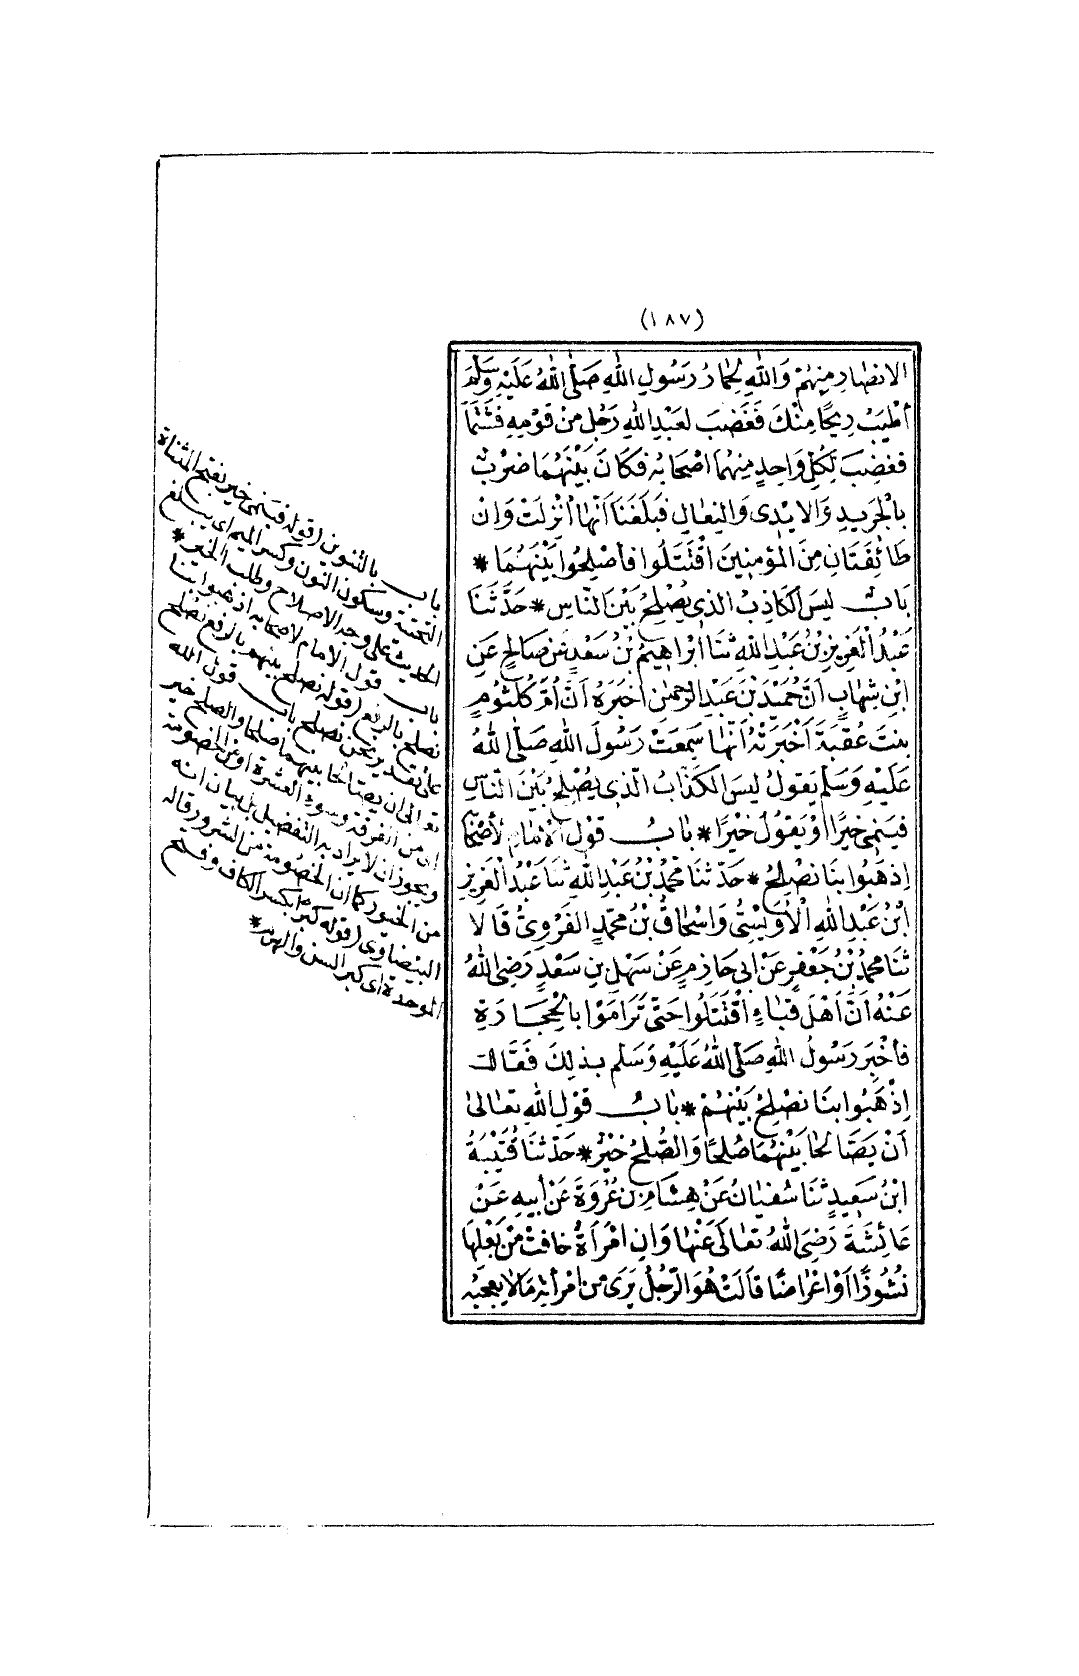 (١٨٧)
الانصار منهم والله لحمار رسول الله صلى الله عليه وسلم
أطيب ريحا منك فغضب لعبد الله رجل من قومه فشتما
فغضب لكل واحد منهما اصحابه فكان بينهما ضرب
بالجريد والايدى والنعال فبلغنا أنها أنزلت وان
طائفتان من المؤمنين اقتتلوا فأصلحوا بينهما *
باب ليس الكاذب الذى يصلح بين الناس * حدثنا
عبد العزيز بن عبد الله ثنا ابراهيم بن سعد عن صالح عن
ابن شهاب أن حميد بن عبد الرحمن أخبره أن أم كلثوم
بنت عقبة أخبرته أنها سمعت رسول الله صلى الله
عليه وسلم يقول ليس الكذاب الذى يصلح بين الناس
فينمى خيرا أو يقول خيرا * باب قول الامام لأصحابه
اذهبوا بنا نصلح * حدثنا محمد بن عبد الله ثنا عبد العزيز
ابن عبد الله الأويسى واسحاق بن محمد الفروى قالا
ثنا محمد بن جعفر عن ابى حازم عن سهل بن سعد رضى الله
عنه أن أهل قباء اقتتلوا حتى تراموا بالحجارة
فأخبر رسول الله صلى الله عليه وسلم بذلك فقال
اذهبوا بنا نصلح بينهم * باب قول الله تعالى
أن يصالحا بينهما صلحا والصلح خير * حدثنا قتيبة
ابن سعيد ثنا سفيان عن هشام بن عروة عن أبيه عن
عائشة رضى الله تعالى عنها وان امرأة خافت من بعلها
نشوزا أو اعراضا قالت هو الرجل يرى من امرأته مالا يعجبه
باب بالتنوين (قوله فينمى خيرا بفتح المثناة
التحتية وسكون النون وكسر الميم اى يبلغ
الحديث على وجه الاصلاح وطلب الخير *
باب قول الامام لاصحابه اذهبوا بنا
نصلح بالرفع (قوله نصلح بينهم بالرفع نصلح
على تقدير نحن نصلح باب قول الله
تعالى ان يصالحا بينهما صلحا والصلح خير
اى من الفرقة وسوء العشرة او من الخصومة
ويجوز ان لا يراد به التفضيل بل بيان انه
من الخيور كما ان الخصومة من الشرور قاله
البيضاوى (قوله كبرا بكسر الكاف وفتح
الموحدة اى كبر السن والهرم *